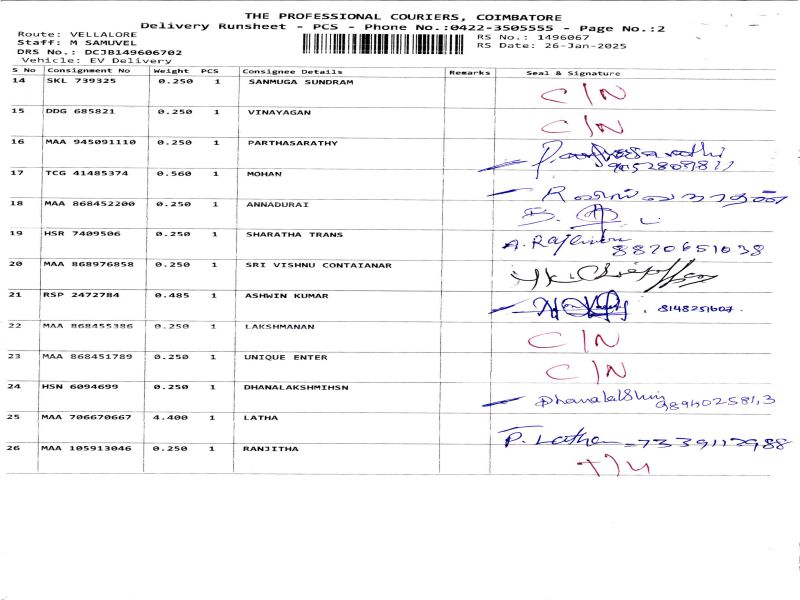 THE PROFESSIONAL COURIERS, COIMBATORE
Delivery Runsheet - PCS - Phone No.:0422-3505555 - Page No.:2
Route: VELLALORE
RS No.: 1496067
Staff: M SAMUVEL
RS Date: 26-Jan-2025
DRS No.: DCJB149606702
Vehicle: EV Delivery
S No Consignment No Weight PCS Consignee Details Remarks Seal & Signature
14 SKL 739325 0.250 1 SANMUGA SUNDRAM C/N
15 DDG 685821 0.250 1 VINAYAGAN C/N
16 MAA 945091110 0.250 1 PARTHASARATHY
17 TCG 41485374 0.560 1 MOHAN
18 MAA 868452200 0.250 1 ANNADURAI
19 HSR 7409506 0.250 1 SHARATHA TRANS A. Rajendra 8870651038
20 MAA 868976858 0.250 1 SRI VISHNU CONTAIANAR
21 RSP 2472784 0.485 1 ASHWIN KUMAR 8148251607
22 MAA 868455386 0.250 1 LAKSHMANAN C/N
23 MAA 868451789 0.250 1 UNIQUE ENTER C/N
24 HSN 6094699 0.250 1 DHANALAKSHMIHSN
25 MAA 706670667 4.400 1 LATHA P. Latha - 7339112988
26 MAA 105913046 0.250 1 RANJITHA